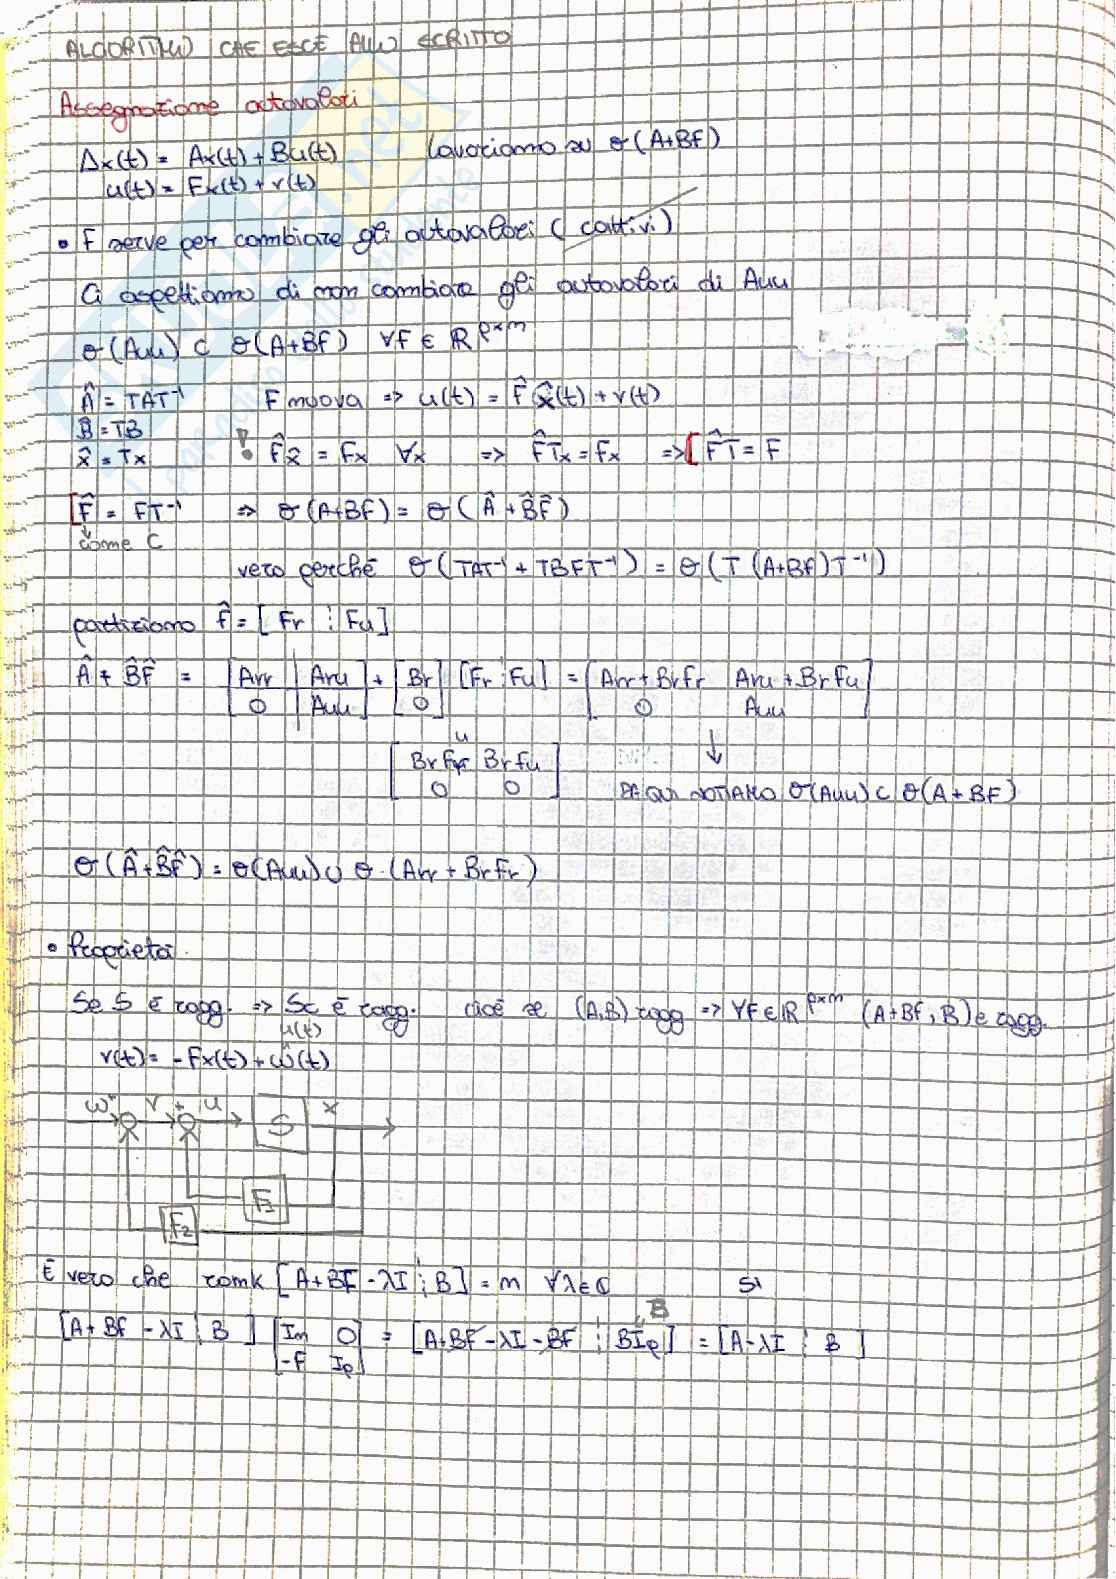 ALGORITMO CHE ESCE ALLO SCRITTO
Assegnazione autovalori
Δx(t) = Ax(t) + Bu(t) lavoriamo su σ(A+BF)
u(t) = Fx(t) + v(t)
• F serve per cambiare gli autovalori (cattivi)
Ci aspettiamo di non cambiare gli autovalori di Auu
σ(Auu) ⊂ σ(A+BF) ∀F ∈ ℝ^pxn
Â = TAT⁻¹ F nuova => u(t) = F̂x̂(t) + v(t)
B̂ = TB
x̂ = Tx ! F̂x̂ = Fx ∀x => F̂Tx = Fx => [F̂T = F
[F̂ = FT⁻¹ => σ(A+BF) = σ(Â + B̂F̂)
come C
vero perchè σ(TAT⁻¹ + TBFT⁻¹) = σ(T(A+BF)T⁻¹)
partiziamo F̂ = [Fr ⋮ Fu]
Â + B̂F̂ = [Arr | Aru] + [Br] [Fr ⋮ Fu] = [Arr + BrFr Aru + BrFu]
[0 | Auu] [0] [0 Auu]
u
[BrFr BrFu] ↓
[0 0] DA QUI NOTIAMO σ(Auu) ⊂ σ(A+BF)
σ(Â+B̂F̂) = σ(Auu) ∪ σ(Arr + BrFr)
• Proprietà.
Se S è ragg. => Sc è ragg. cioè se (A,B) ragg => ∀F∈ℝ^pxn (A+BF, B) è ragg.
u(t)
v(t) = -Fx(t) + ω(t)
ω + v + u S x
F1
F2
È vero che rank [A+BF-λI ⋮ B] = n ∀λ∈ℂ SI
B
[A+BF-λI | B] [In 0] = [A+BF-λI-BF ⋮ BIp] = [A-λI ⋮ B]
[-F Ip]